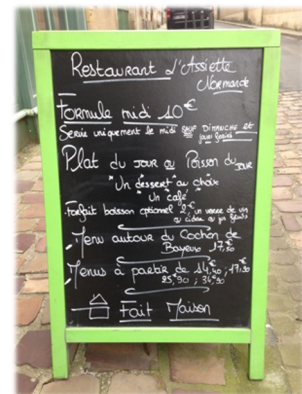 Restaurant L'Assiette
Normande
Formule midi 10€
Servie uniquement le midi SAUF DIMANCHE et
jours fériés
Plat du Jour ou Poisson du Jour
"Un dessert" au choix
"Un café"
forfait boisson optionnel 2€ un verre de vin
ou cidre ou
Menu autour du Cochon de
Bayeux 17,50€
Menus à partir de 14,40€; 17,90€
25€90; 34€90
Fait Maison